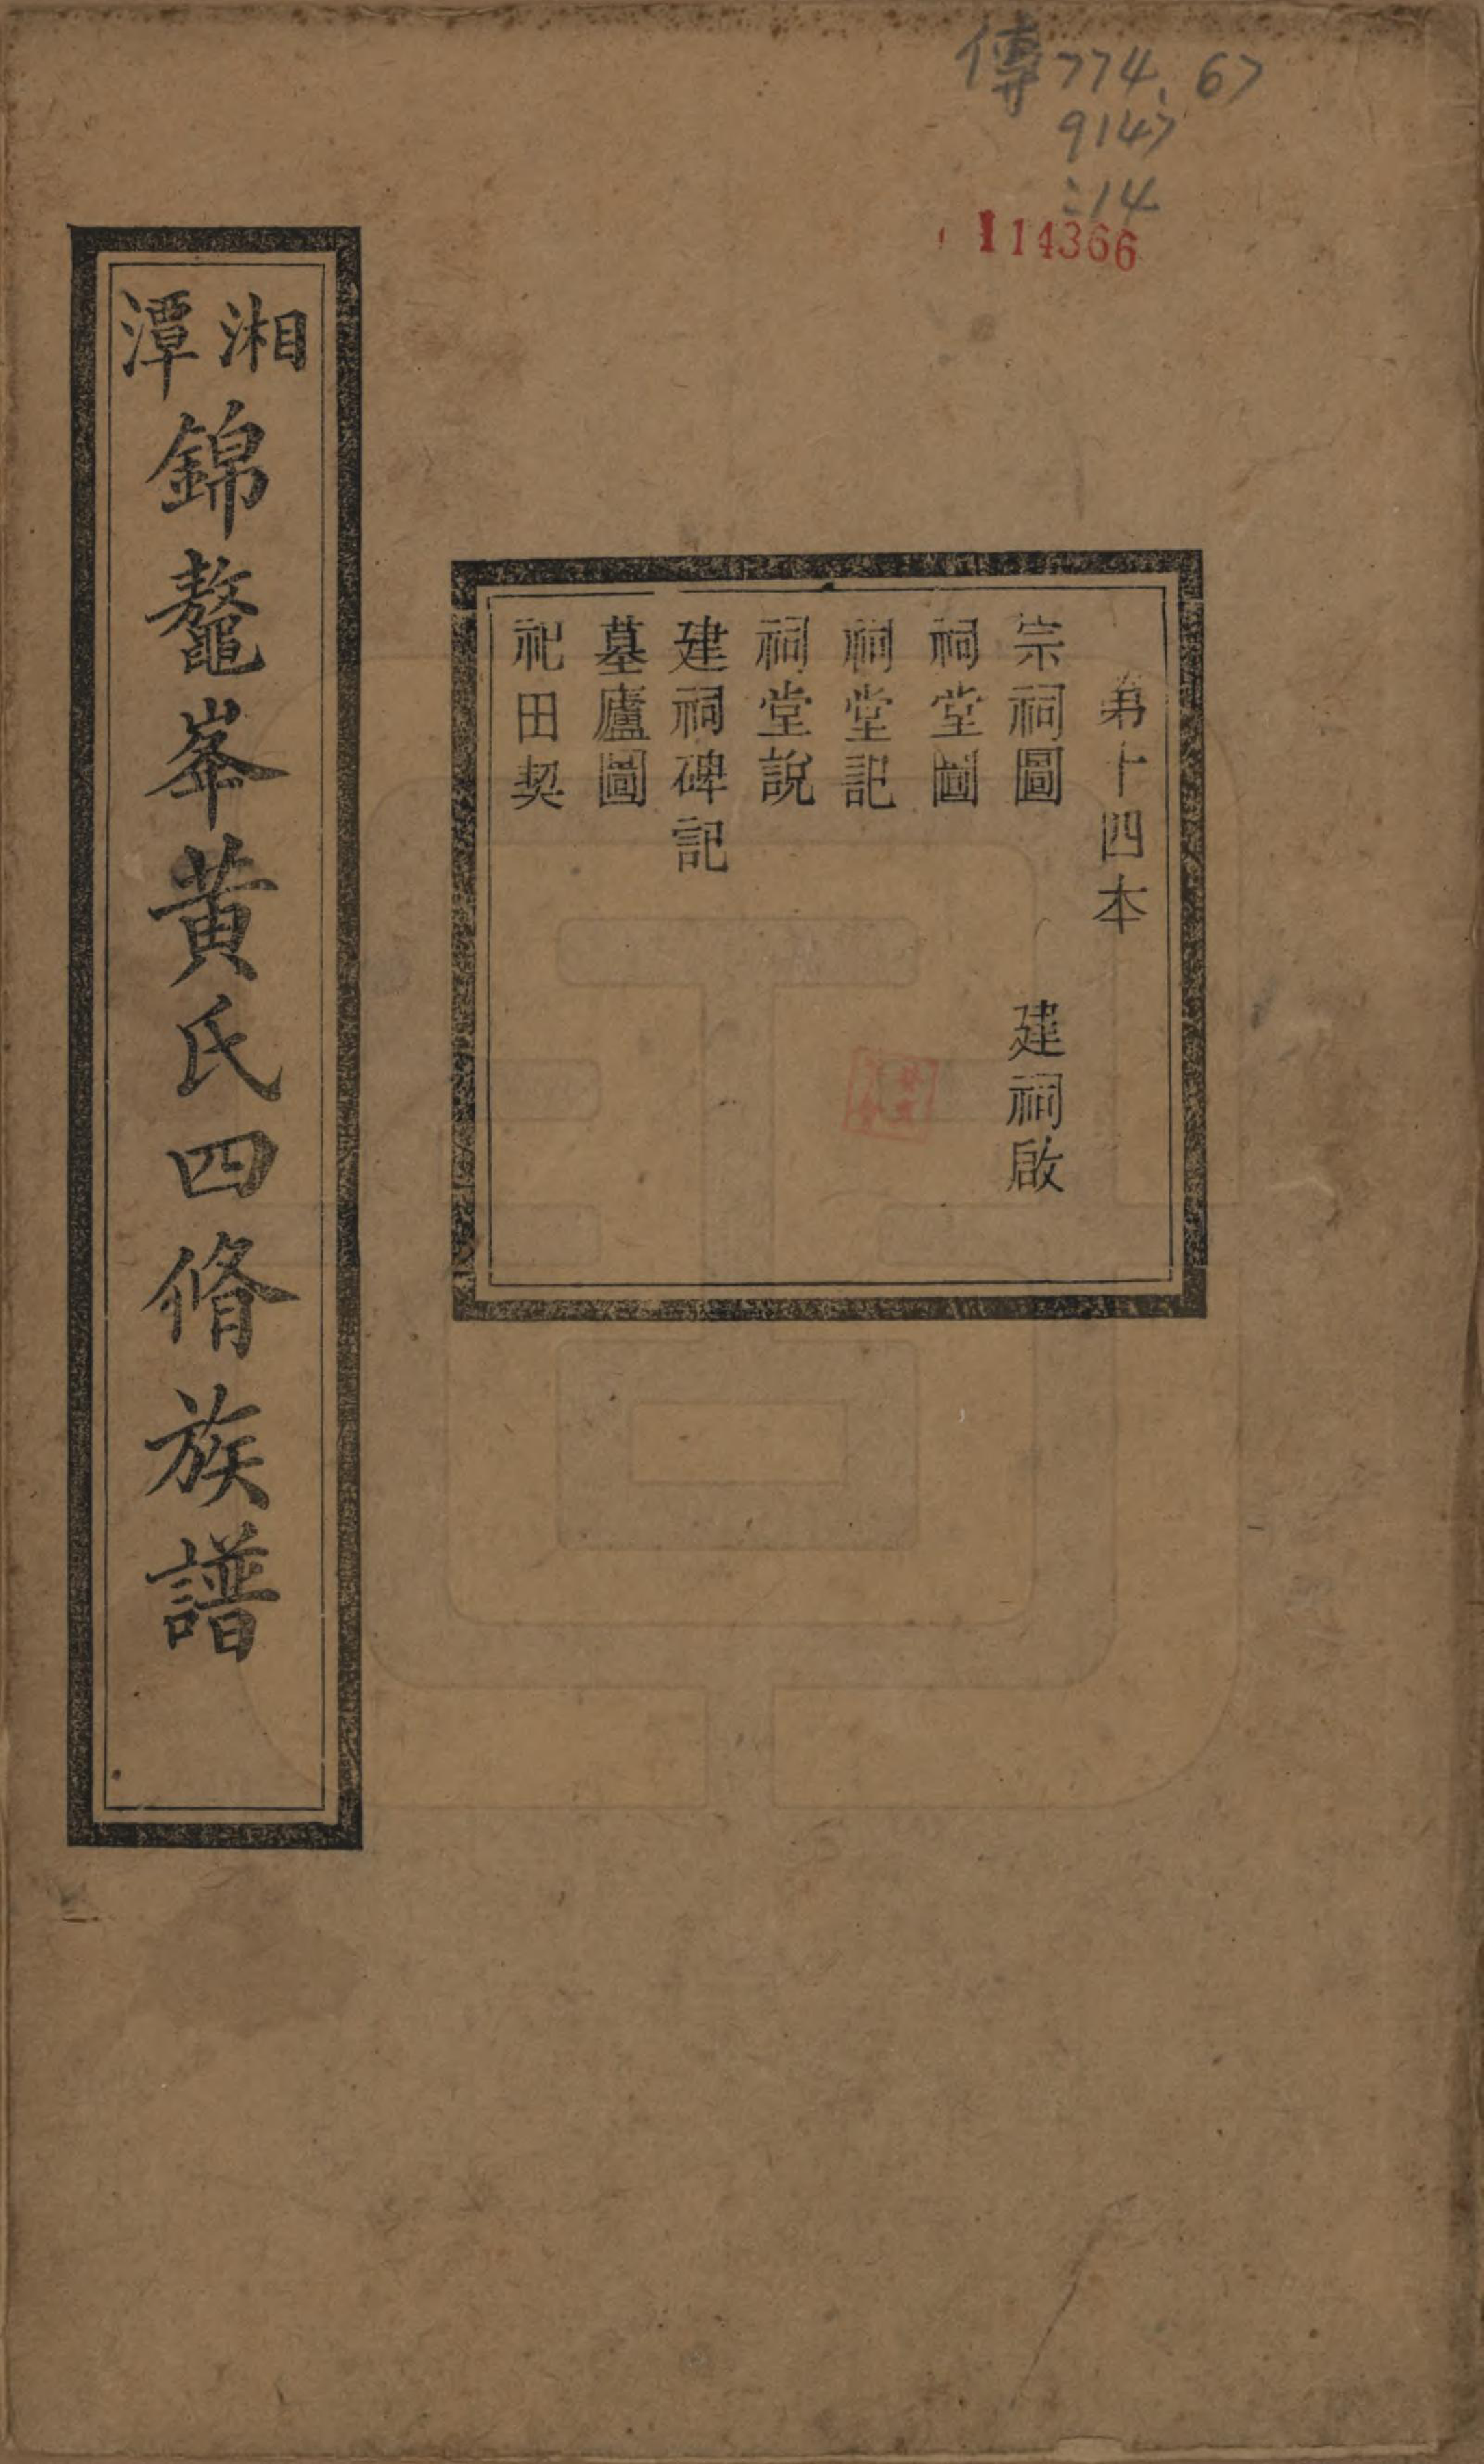 傳774.67
9147
:14
114366
第十四本
宗祠圖 建祠啟
祠堂圖
祠堂記
祠堂說
建祠碑記
墓廬圖
祀田契
湘潭錦鼇峯黃氏四脩族譜